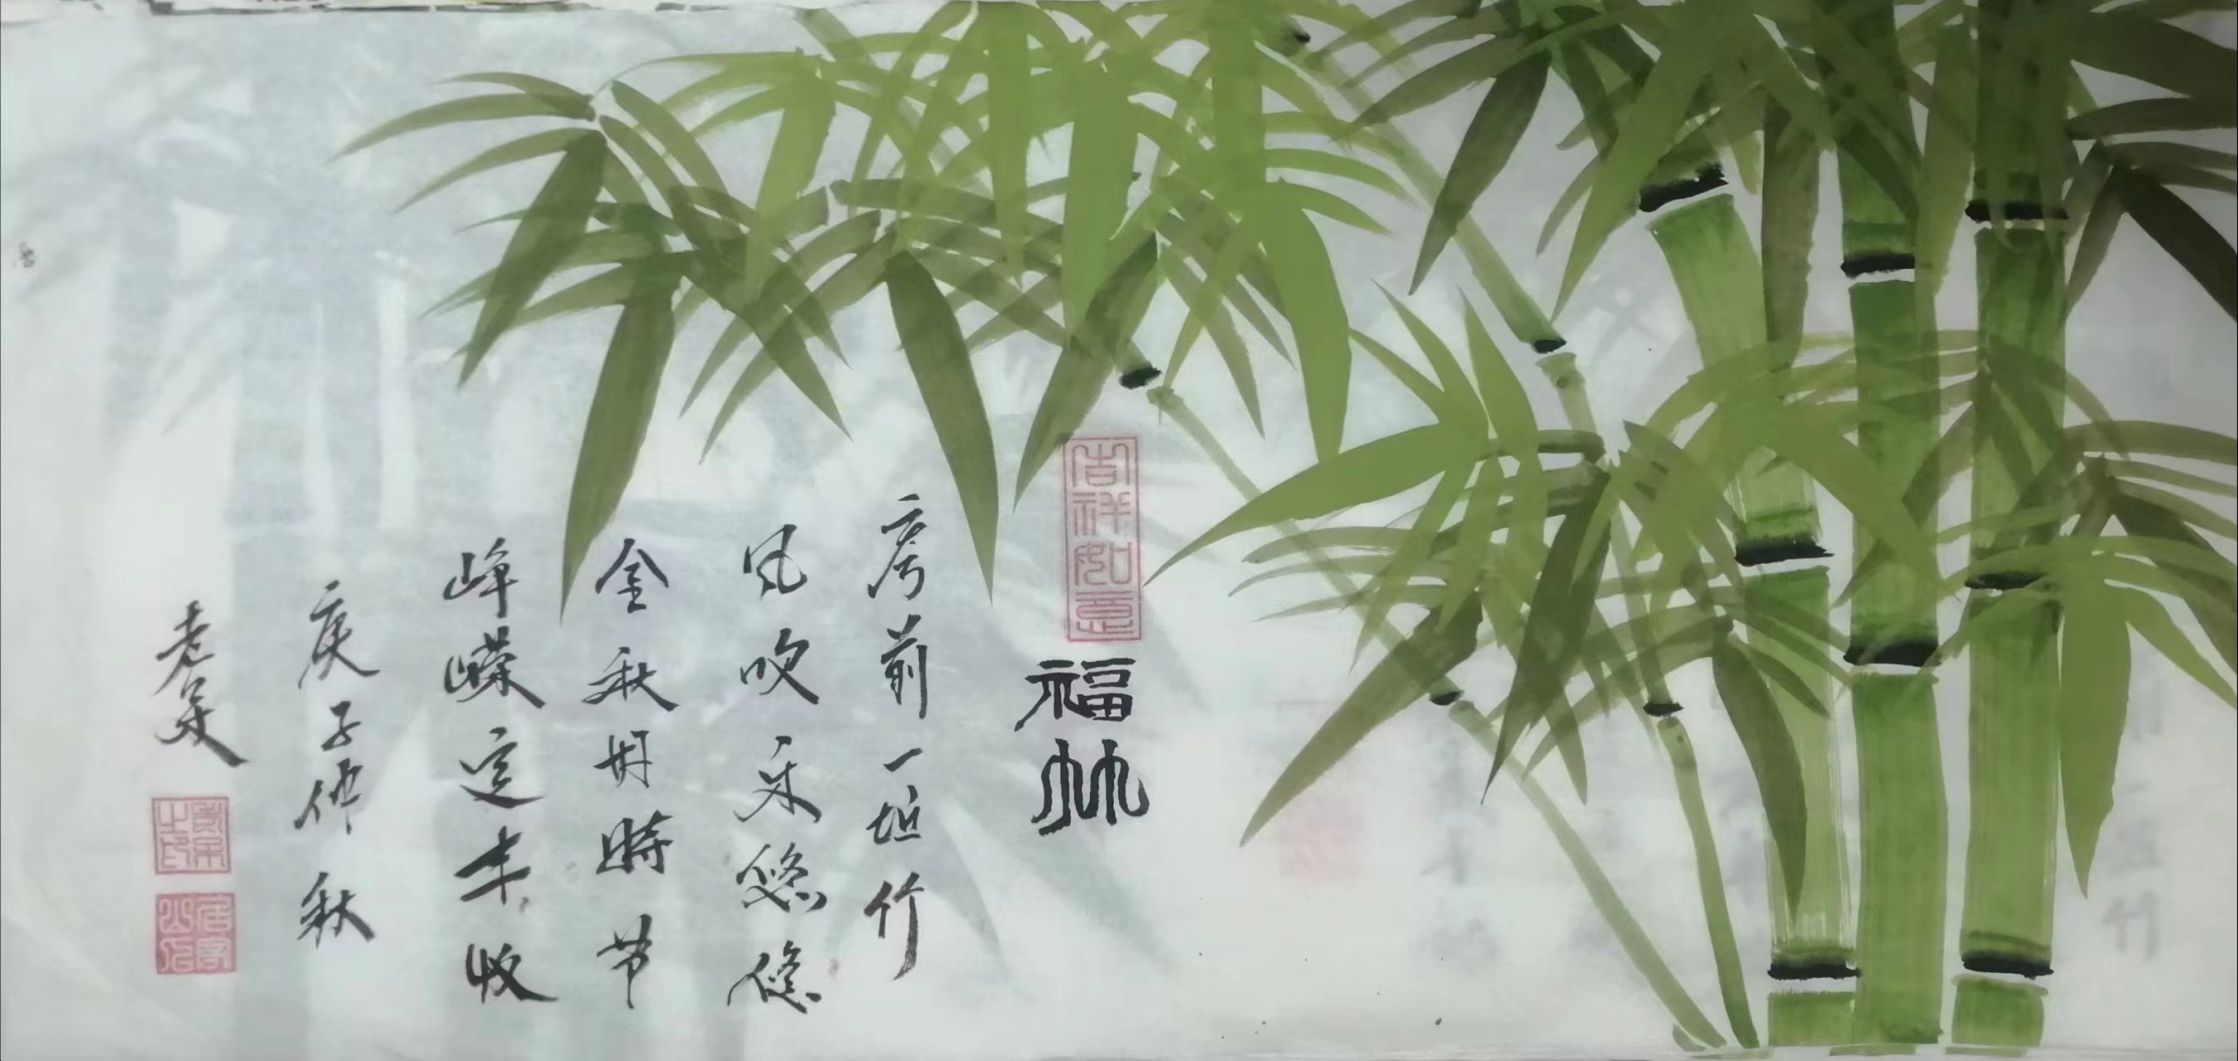 吉祥如意
福竹
房前一垣竹
风吹乐悠悠
金秋好時节
峥嵘定丰收
庚子仲秋